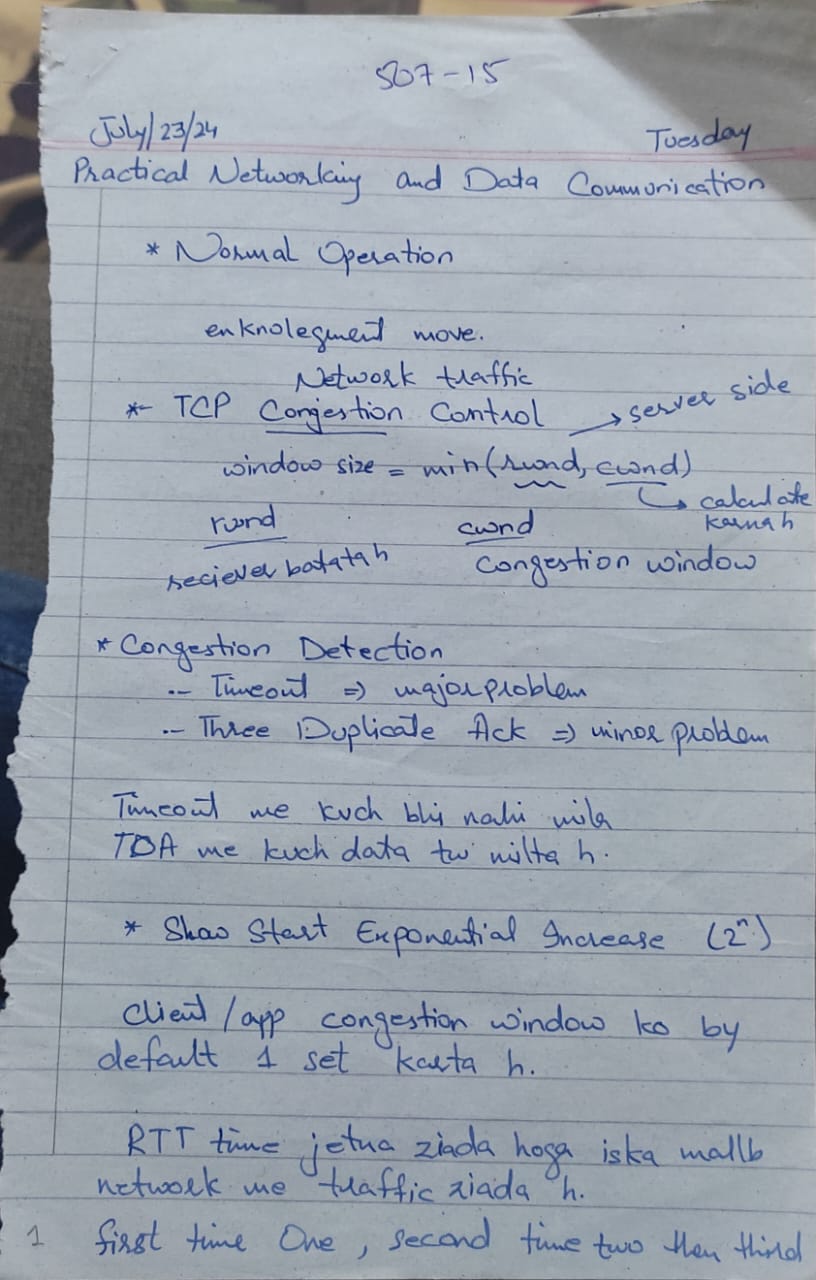 507-15
July/23/24 Tuesday
Practical Networking and Data Communication
* Normal Operation
enknolegment move.
Network traffic
* TCP Congestion Control → server side
window size = min(rwnd, cwnd)
↳ calculate karna h
rwnd cwnd
reciever batata h congestion window
* Congestion Detection
-- Timeout => major problem
-- Three Duplicate Ack => minor problem
Timeout me kuch bhi nahi mila
TDA me kuch data tw milta h.
* Slow Start Exponential Increase (2ⁿ)
Client/app congestion window ko by
default 1 set karta h.
RTT time jetna ziada hoga iska matlb
network me traffic ziada h.
1 first time One, second time two then third